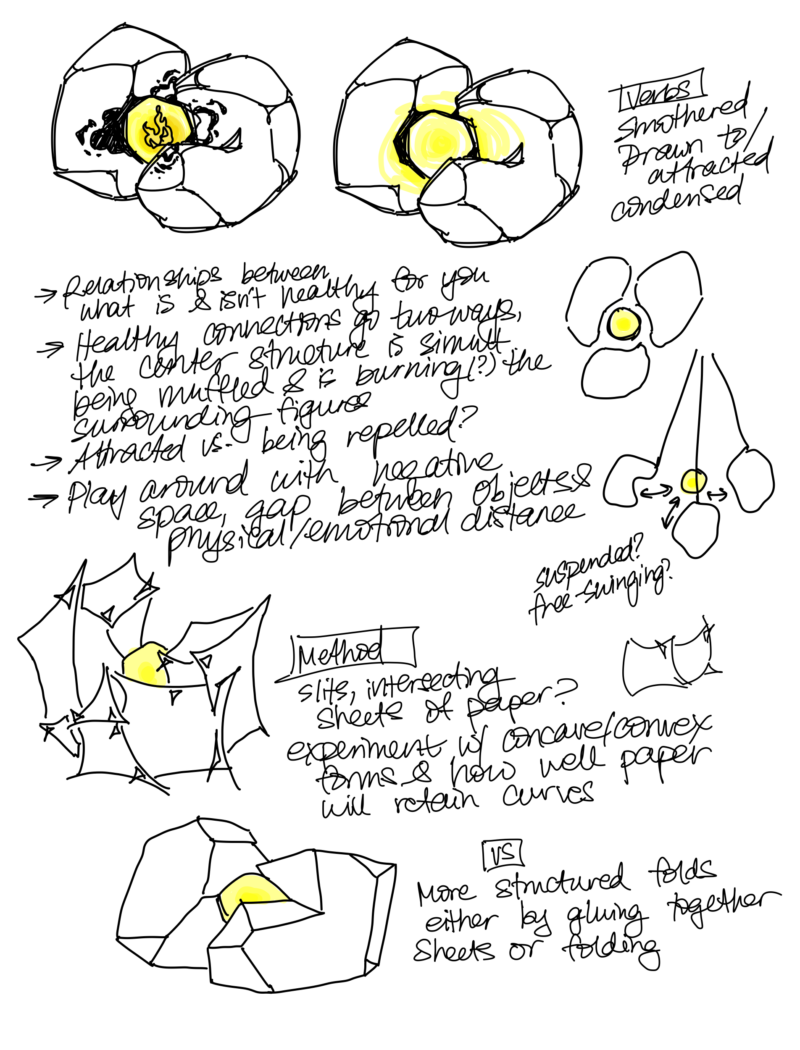 Verbs
smothered
Drawn to/
attracted
condensed
→ Relationships between
what is & isn't healthy for you
→ Healthy connections go two ways,
the center structure is simult.
being muffled & is burning(?) the
surrounding figures
→ Attracted vs. being repelled?
→ Play around with negative
space, gap between objects &
physical/emotional distance
suspended?
free-swinging?
Method
slits, intersecting
sheets of paper?
experiment w/ concave/convex
forms & how well paper
will retain curves
VS
More structured folds
either by gluing together
sheets or folding